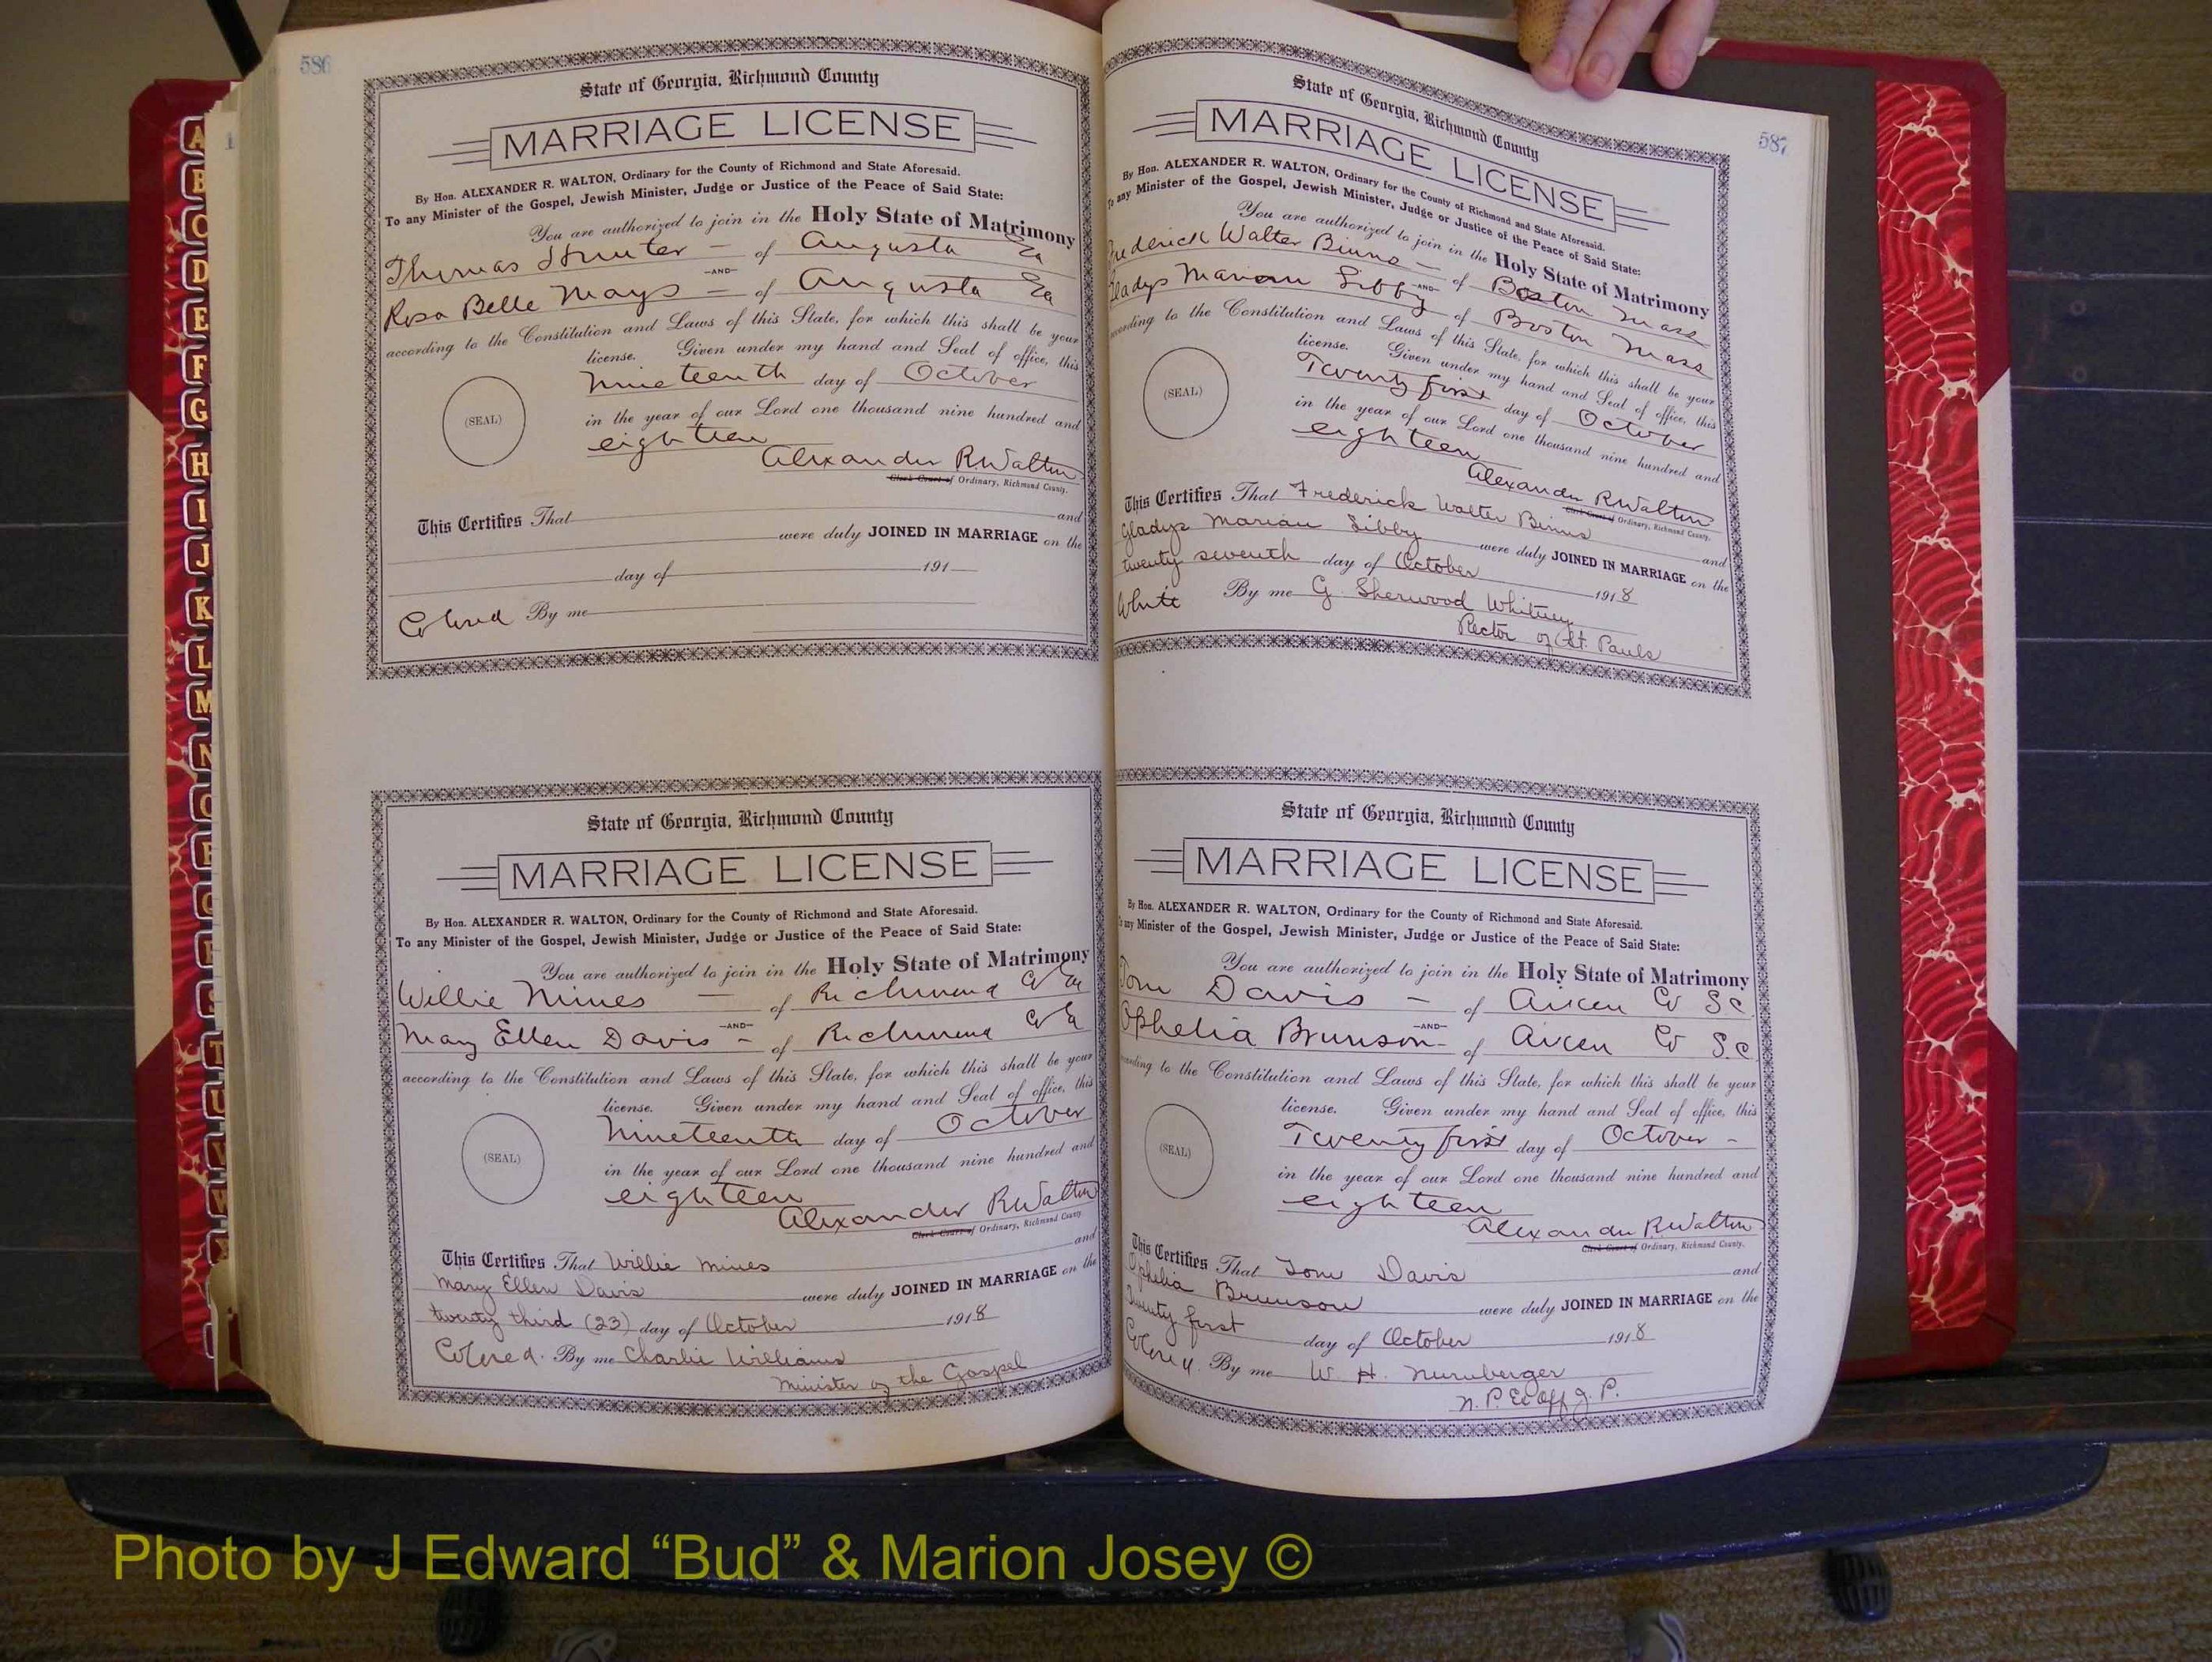 586
State of Georgia, Richmond County
MARRIAGE LICENSE
By Hon. ALEXANDER R. WALTON, Ordinary for the County of Richmond and State Aforesaid.
To any Minister of the Gospel, Jewish Minister, Judge or Justice of the Peace of Said State:
You are authorized to join in the Holy State of Matrimony
Thomas Hunter — of Augusta Ga
—AND—
Rosa Belle Mays — of Augusta Ga
according to the Constitution and Laws of this State, for which this shall be your
license. Given under my hand and Seal of office, this
nineteenth day of October
(SEAL)
in the year of our Lord one thousand nine hundred and
eighteen
Alexander R Walton
Clerk Court of Ordinary, Richmond County.
This Certifies That and
were duly JOINED IN MARRIAGE on the
day of 191
Colored By me
State of Georgia, Richmond County
MARRIAGE LICENSE
By Hon. ALEXANDER R. WALTON, Ordinary for the County of Richmond and State Aforesaid.
To any Minister of the Gospel, Jewish Minister, Judge or Justice of the Peace of Said State:
You are authorized to join in the Holy State of Matrimony
Willie Mines — of Richmond Co Ga
—AND—
Mary Ellen Davis — of Richmond Co Ga
according to the Constitution and Laws of this State, for which this shall be your
license. Given under my hand and Seal of office, this
Nineteenth day of October
(SEAL)
in the year of our Lord one thousand nine hundred and
eighteen
Alexander R Walton
Clerk Court of Ordinary, Richmond County.
This Certifies That Willie Mines and
Mary Ellen Davis were duly JOINED IN MARRIAGE on the
twenty third (23) day of October 1918
Colored. By me Charlie Williams
Minister of the Gospel
587
State of Georgia, Richmond County
MARRIAGE LICENSE
By Hon. ALEXANDER R. WALTON, Ordinary for the County of Richmond and State Aforesaid.
To any Minister of the Gospel, Jewish Minister, Judge or Justice of the Peace of Said State:
You are authorized to join in the Holy State of Matrimony
Frederick Walter Binns — of Boston Mass
—AND—
Gladys Marian Libby of Boston Mass
according to the Constitution and Laws of this State, for which this shall be your
license. Given under my hand and Seal of office, this
Twenty first day of October
(SEAL)
in the year of our Lord one thousand nine hundred and
eighteen
Alexander R Walton
Clerk Court of Ordinary, Richmond County.
This Certifies That Frederick Walter Binns and
Gladys Marian Libby were duly JOINED IN MARRIAGE on the
twenty seventh day of October 1918
White By me G. Sherwood Whitney
Rector of St. Pauls
State of Georgia, Richmond County
MARRIAGE LICENSE
By Hon. ALEXANDER R. WALTON, Ordinary for the County of Richmond and State Aforesaid.
To any Minister of the Gospel, Jewish Minister, Judge or Justice of the Peace of Said State:
You are authorized to join in the Holy State of Matrimony
Tom Davis — of Aiken Co S C
—AND—
Ophelia Brunson — of Aiken Co S.C.
according to the Constitution and Laws of this State, for which this shall be your
license. Given under my hand and Seal of office, this
Twenty first day of October —
(SEAL)
in the year of our Lord one thousand nine hundred and
eighteen
Alexander R. Walton
Clerk Court of Ordinary, Richmond County.
This Certifies That Tom Davis and
Ophelia Brunson were duly JOINED IN MARRIAGE on the
Twenty first day of October 1918
Colored. By me W. H. Nurnberger
N. P. Ex Off J. P.
A
B
C
D
E
F
G
H
I
J
K
L
M
N
O
P
Q
R
S
T
U
V
W
Photo by J Edward “Bud” & Marion Josey ©